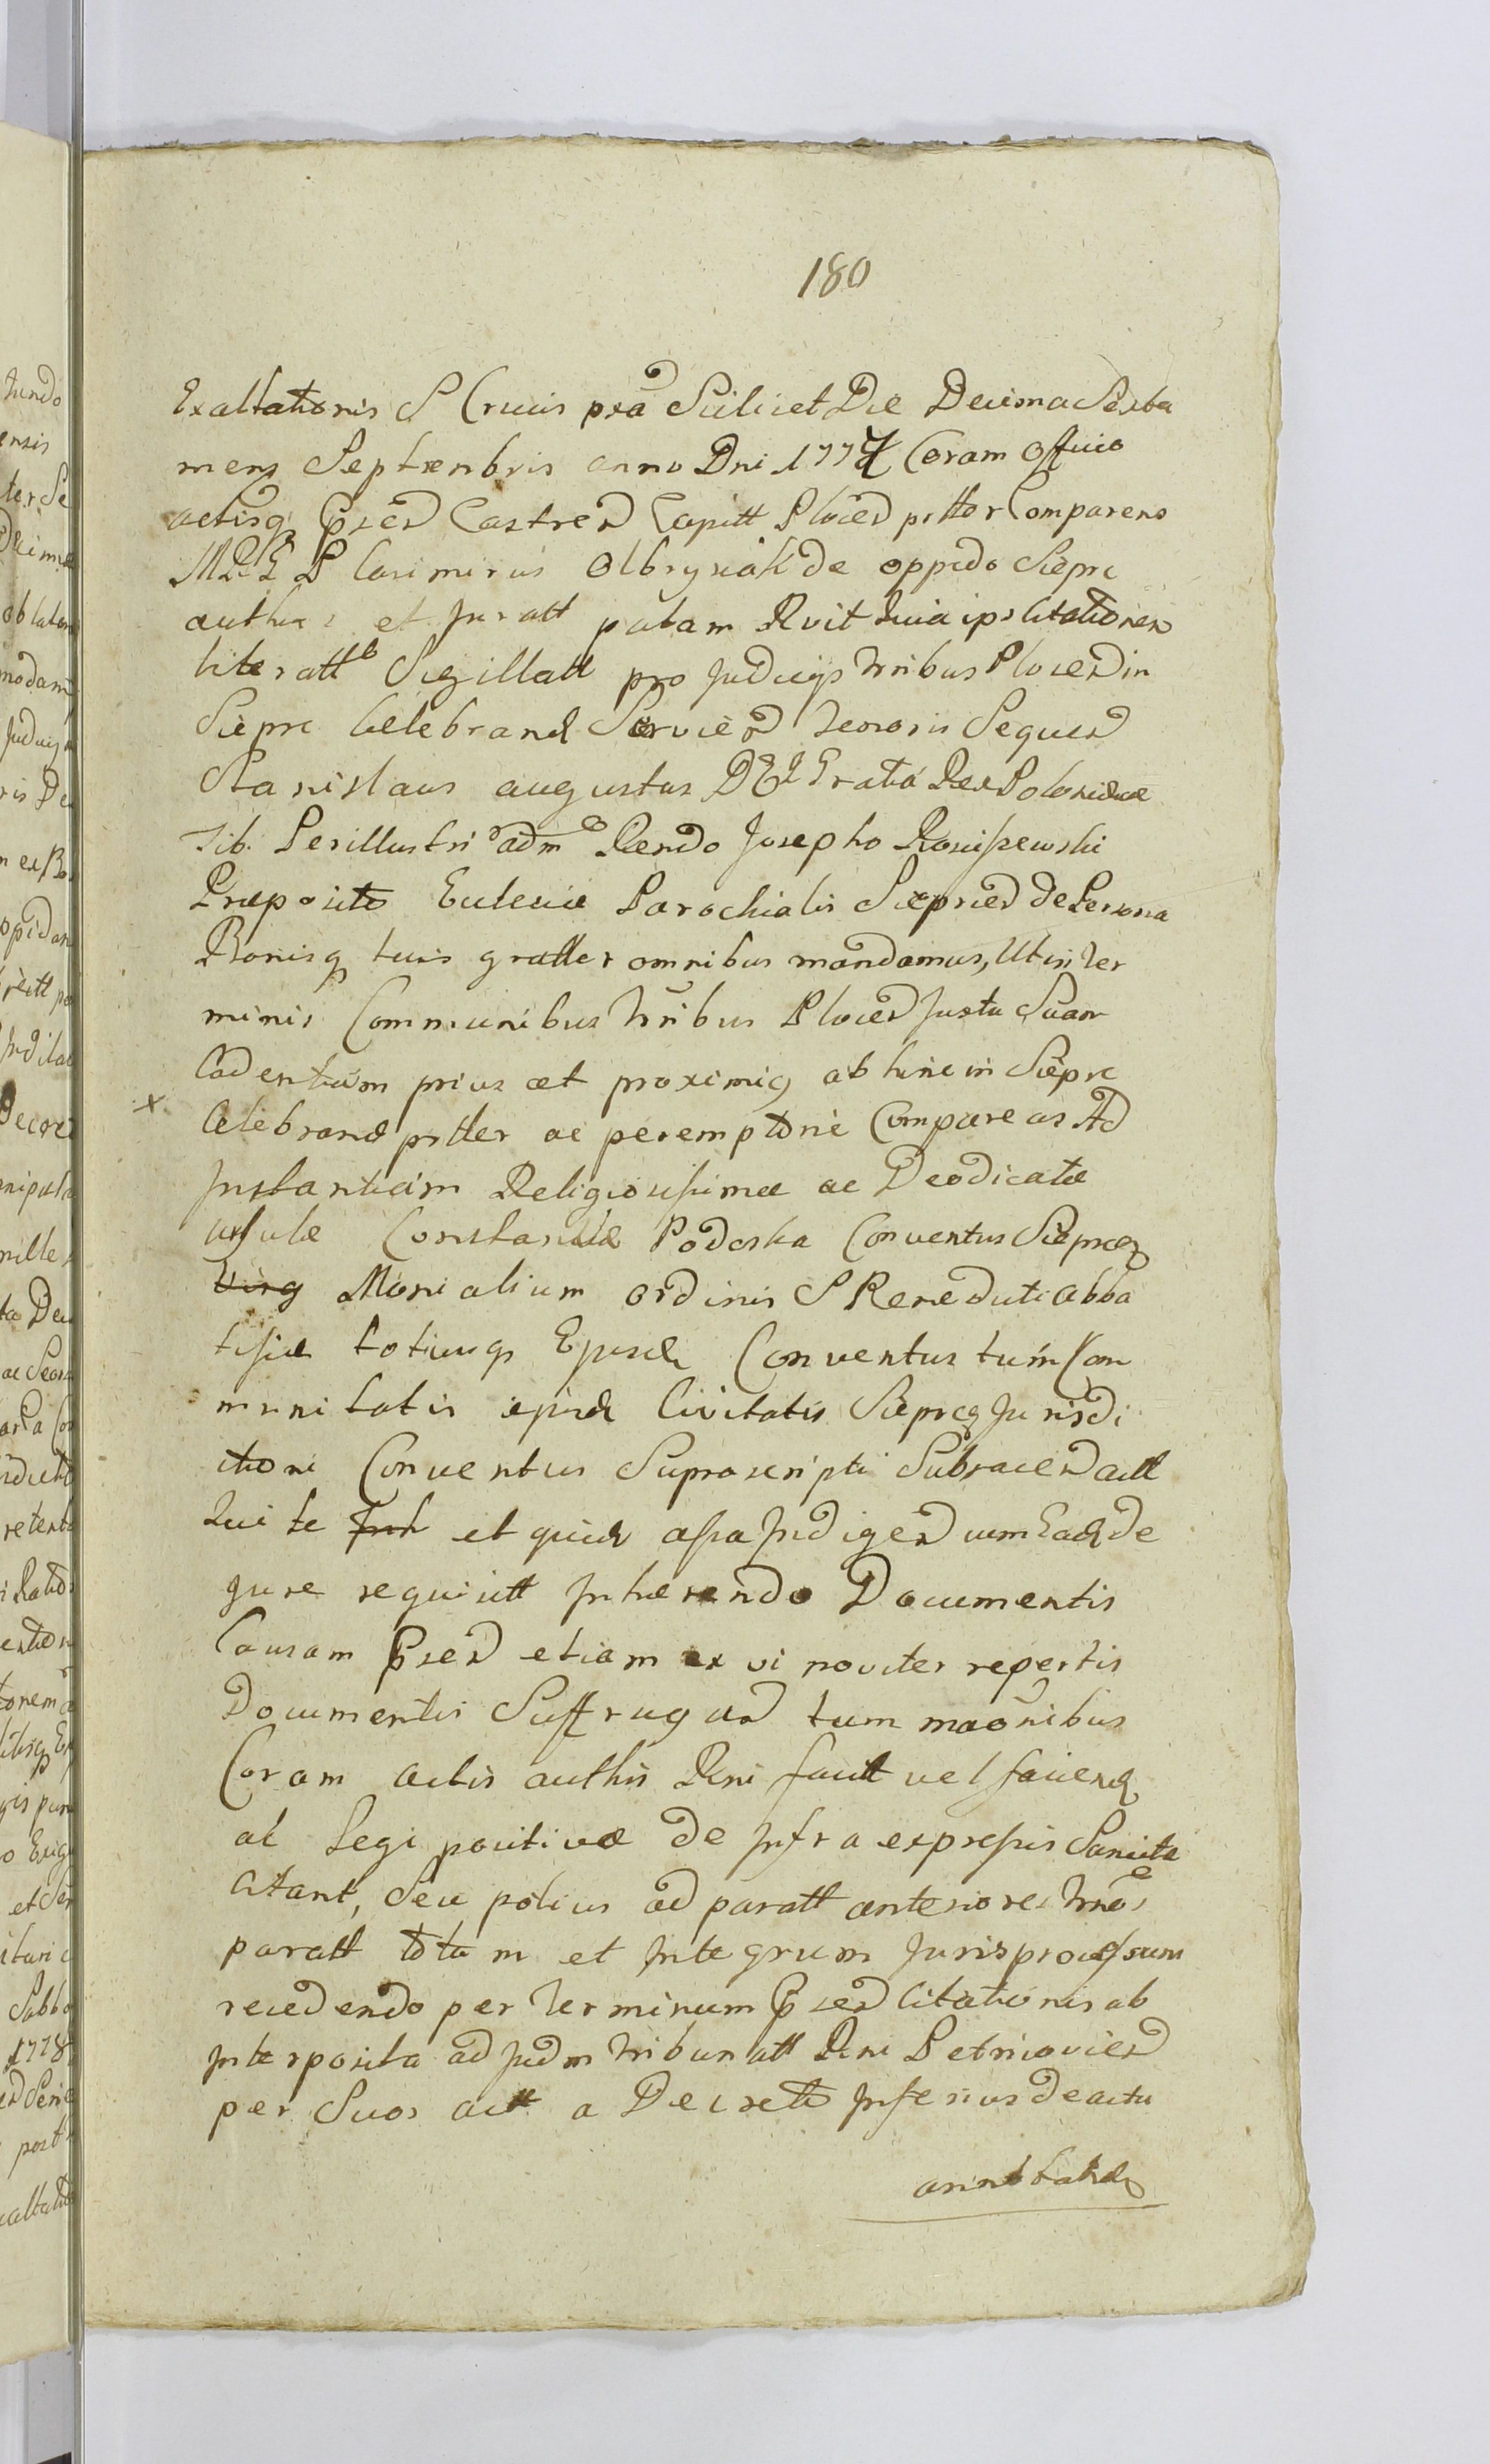 180
Exaltationis S Crucis pxa Scilicet Die Decima Sexta
mens Septembris anno Dni 1777 Coram Officio
actisq Pssen Castren Capitt Plocen psttor Comparens
Casimirus Olbrysiak de oppido Sieprc
auth et Juratt palam Rvit quia ips Citationem
literatt Sigillatt pro Judicijs Tribus Plocen in
Sieprc Celebrand Servien tenoris Sequen
Stanislaus augustus DEI Gratia Rex Poloniae
Tib. Perillustri adm Rendo Josepho Rosciszewski
Praeposito Ecclesiae Parochialis Sieprcen de Persona
Bonisq tuis gratter omnibus mandamus, Ut in Ter
minis Communibus Tribus Plocen Juxta Suam
Cadentiam prius et proximiq ab hinc in Sieprc
x Celebrand pstter ac peremptorie Compareas Ad
Instantiam Religiosissimae ac Deodicatae
Ursulae Constantiae Podoska Conventus Sieprcen
Virg Monialium Ordinis S Benedicti Abba
tissae totiusq Ejusd Conventus tum Com
munitatis ejusd Civitatis Sieprcen Jurisdi
ctioni Conventus Suprascripti Subjacen actt
Qui te et quid assa Indigen cum Ead de
jure requisitt Inhaerendo Documentis
Causam Pssen etiam ex vi noviter repertis
Documentis Suffragan tum maonibus
Coram actis authis Rni factt vel faciend
ac Legi positivae de Infra expressis Sancita
Citant, Seu potius ad paratt anteriores Trnos
paratt totum et Integrum Juris processum
recedendo per Terminum Pssen Citationis ab
Interposita ad Judm Tribunatt Rni Petricovien
per Suos actt a Decreto Inferius de actu
annotatd